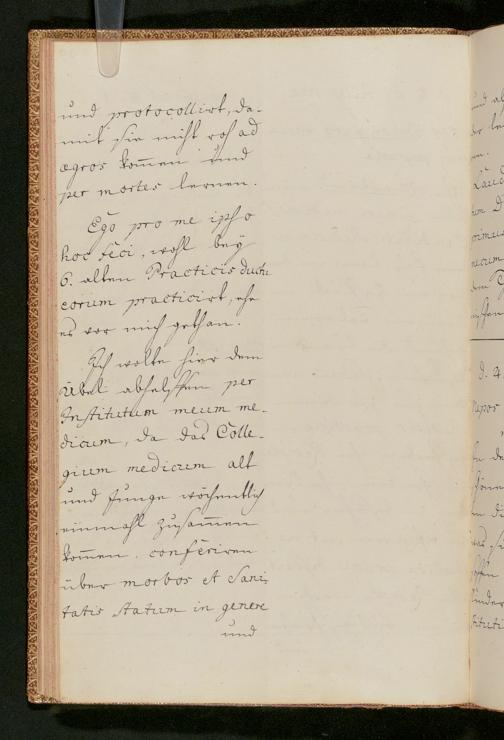 und protocollirt, da-
mit sie nicht roh ad
ægros kom̄en und
per mortes lernen.
Ego pro me ipso
hoc feci, wohl bey
6. alten Practicis
eorum practicirt, ehe
es vor mich gethan.
Ich wolte hier dem
Übel abhelffen per
Institutum meum me-
dicum, da das Colle-
gium medicum alt
und Junge wöchentlich
einmahl zusam̄en
kom̄en, conferiren
über morbos et Sani-
tatis statum in genere
und